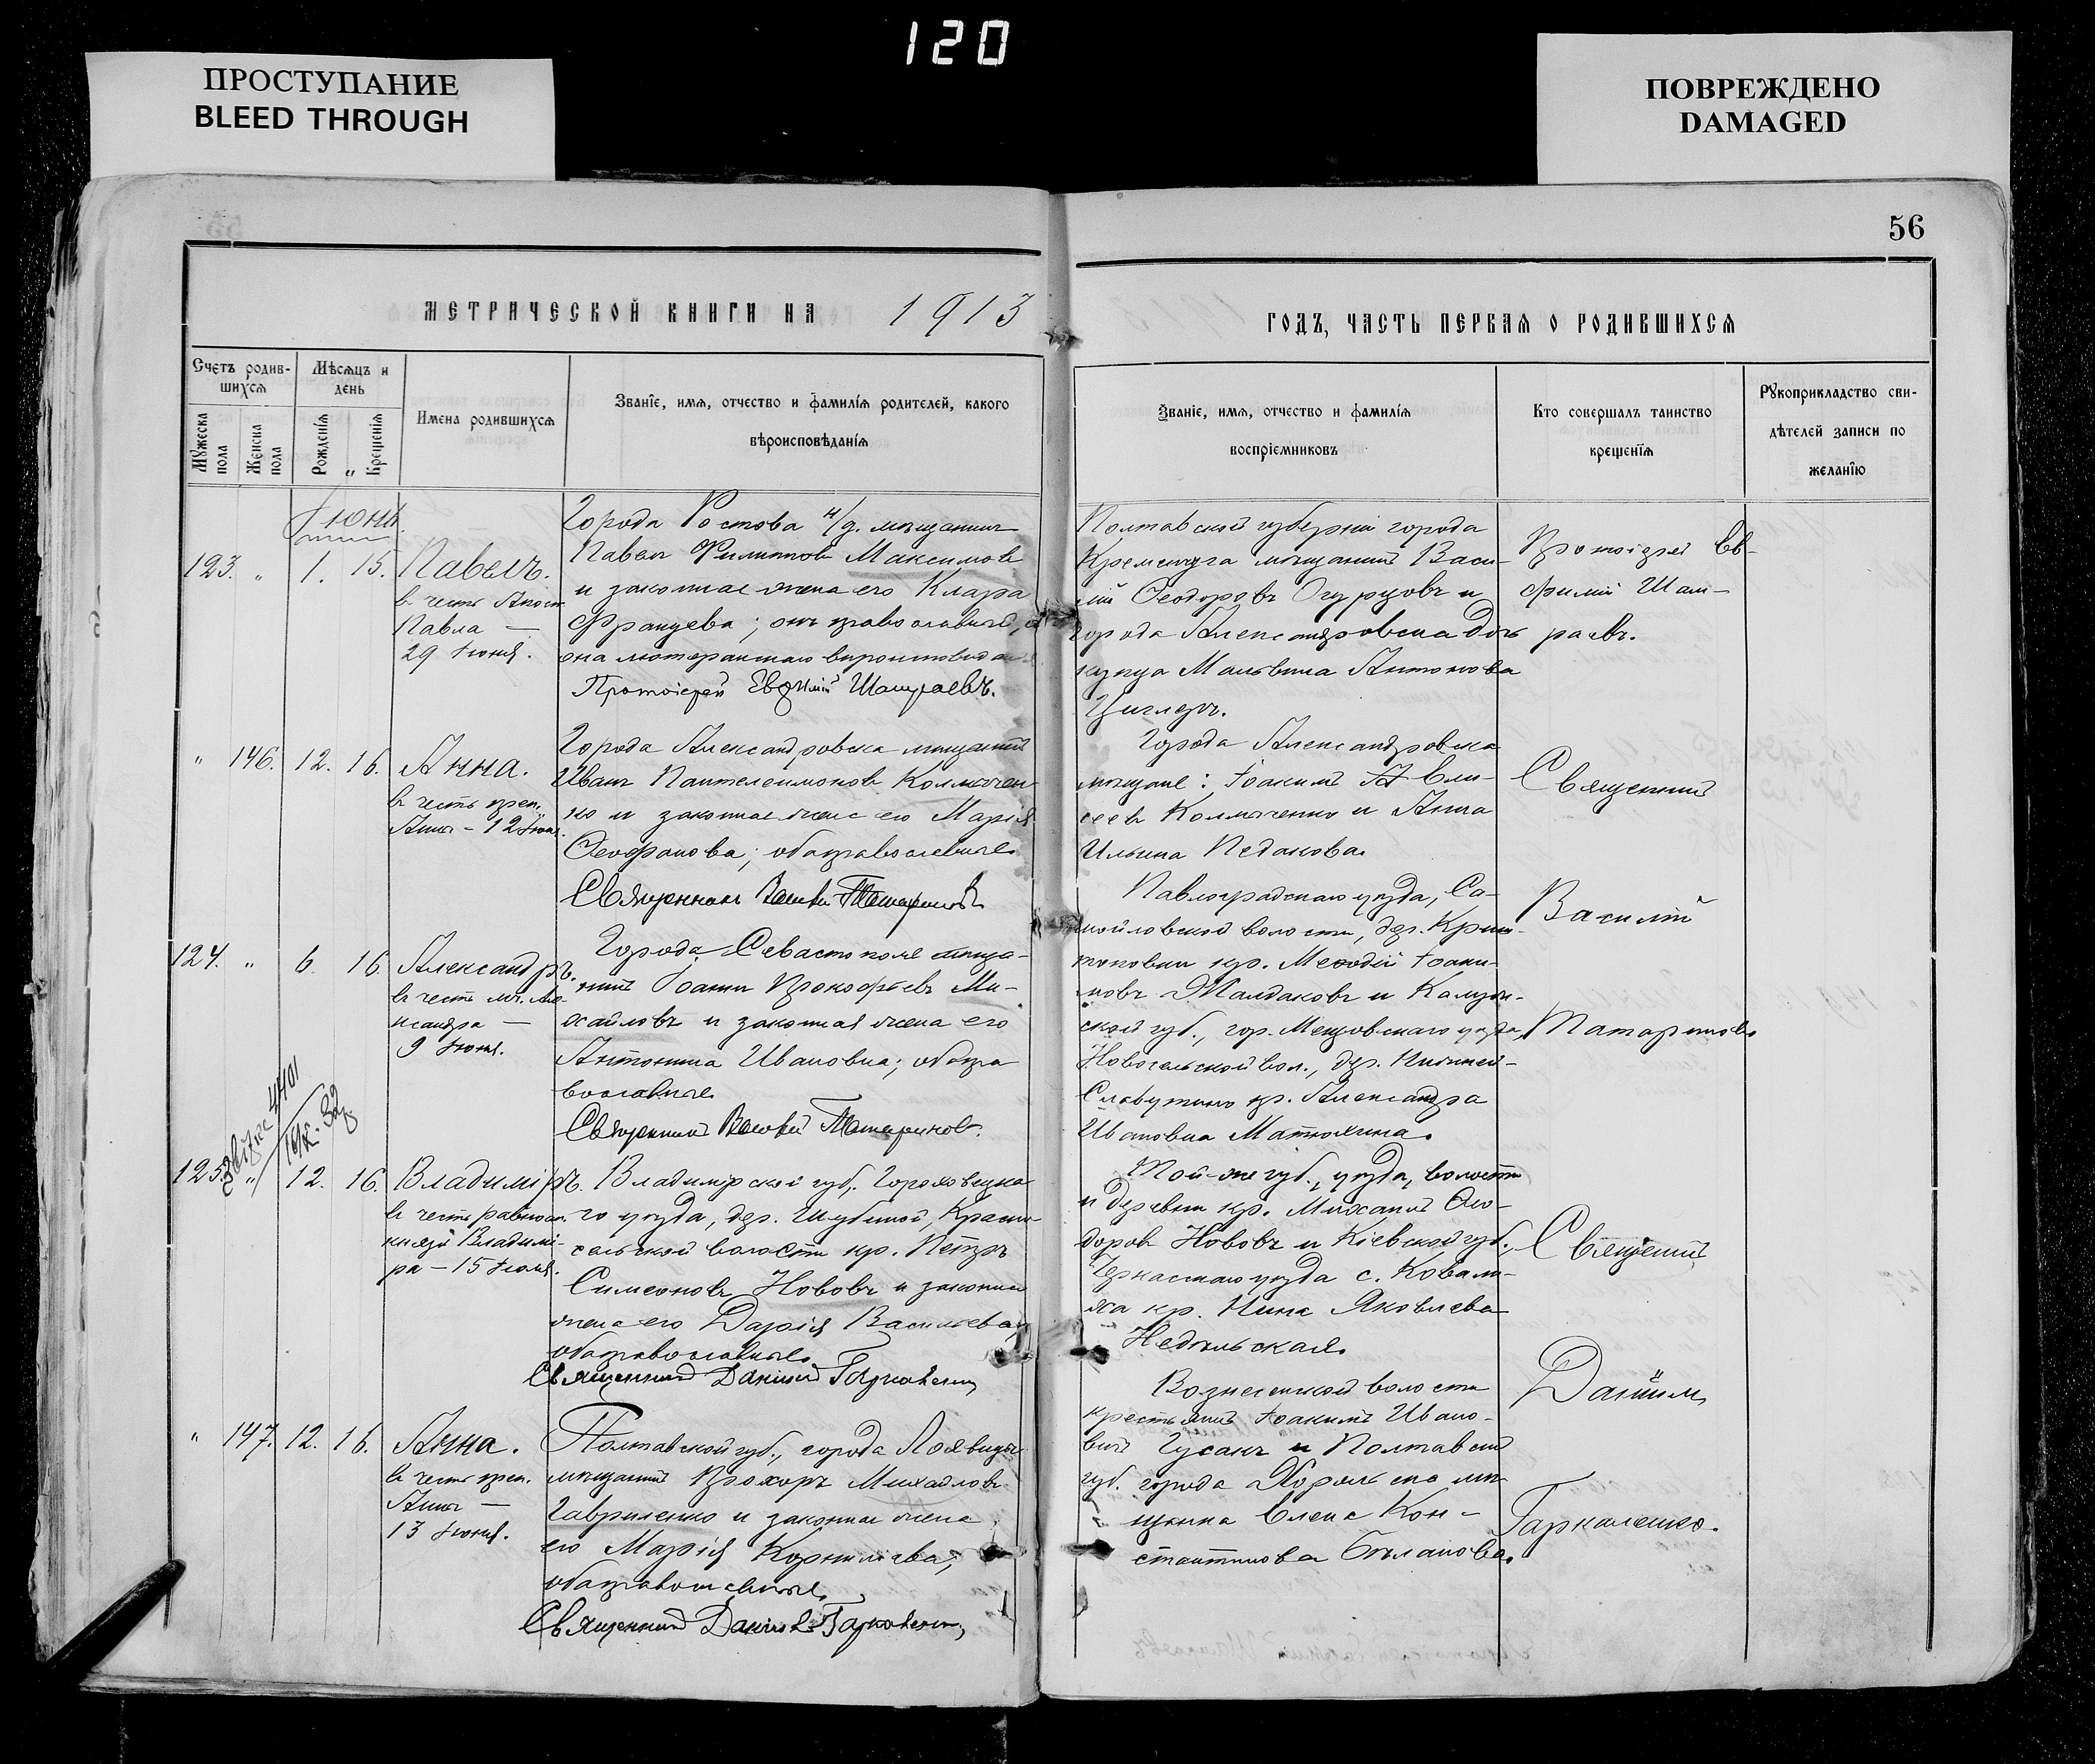 120
ПРОСТУПАНИЕ
BLEED THROUGH
ПОВРЕЖДЕНО
DAMAGED
56
МЕТРИЧЕСКОЙ КНИГИ НА 1913
ГОДЪ, ЧАСТЬ ПЕРВАЯ О РОДИВШИХСЯ
Счетъ родив-
шихся
Мужеска пола
Женска пола
Мѣсяцъ и
день
Рожденія
Крещенія
Имена родившихся
Званіе, имя, отчество и фамилія родителей, какого
вѣроисповѣданія
Званіе, имя, отчество и фамилія
воспріемниковъ
Кто совершалъ таинство
крещенія
Рукоприкладство сви-
дѣтелей записи по
желанію
Іюнь.
123. " 1. 15. Павелъ.
въ честь Апост.
Павла —
29 Іюня.
Города Ростова н/Д. мѣщанинъ
Павелъ Филипповъ Максимовъ
и законная жена его Клара
Францева; онъ православный, а
она лютеранскаго вѣроисповѣда
Протоіерей Евфимій Шашраевъ.
Полтавской губерніи города
Кременчуга мѣщанинъ Васи-
лій Ѳеодоровъ Огурцовъ и
города Александровска дочь
купца Мальвина Антонова
Циглеръ.
Протоіерей Ев-
фимій
" 146. 12. 16. Анна.
въ честь преп.
Анны – 12 Іюня.
Города Александровска мѣщанинъ
Иванъ Пантелеимоновъ Колмычен-
ко и законная жена его Марія
Ѳеофанова; оба православные.
Священникъ Василій Татариновъ
Города Александровска
мѣщане: Іоакимъ Ели-
сеевъ Колмыченко и Анна
Ильина Педакова.
Священникъ
Василій
Татариновъ
124. " 6. 16. Александръ.
въ честь мч. Але-
ксандра —
9 Іюня.
Города Севастополя мѣща-
нинъ Іоаннъ Прокофьевъ Ми-
хайловъ и законная жена его
Антонина Ивановна; оба пра
вославные.
Священникъ Василій Татариновъ.
Павлоградскаго уѣзда, Са-
мойловской волости, дер.
кр. Меѳодій Іоаки-
мовъ Жалдаковъ и Калуж-
ской губ., гор. Мещовскаго уѣзда,
Новосельской вол., дер.
кр. Александра
Ивановна Матюхина.
4401
32
125. " 12. 16. Владиміръ.
въ честь равноап.
князя Владимі-
ра – 15 Іюля.
Владимірской губ., Гороховецка
го уѣзда, дер. Шубиной, Красно-
сельской волости кр. Петръ
Симеоновъ Нововъ и законная
жена его Дарія Васильева,
оба православные.
Священникъ Даніилъ Гаркаленко
Той-же губ., уѣзда, волости
и деревни кр. Михаилъ Ѳео-
доровъ Нововъ и Кіевской губ.,
Черкасскаго уѣзда с.
кр. Нина Яковлева
Недѣльская.
Священникъ
Даніилъ
Гаркаленко.
" 147. 12. 16. Анна.
въ честь преп.
Анны —
13 Іюня.
Полтавской губ., города Лохвицы
мѣщанинъ Прохоръ Михайловъ
Гавриленко и законная жена
его Марія Корниліева;
оба православные.
Священникъ Даніилъ Гаркаленко
Вознесенской волости
крестьянинъ Іоакимъ Ивано-
вичъ Гусакъ и Полтавской
губ. города Хорольска мѣ-
щанка Елена Кон-
стантинова Бѣланова.